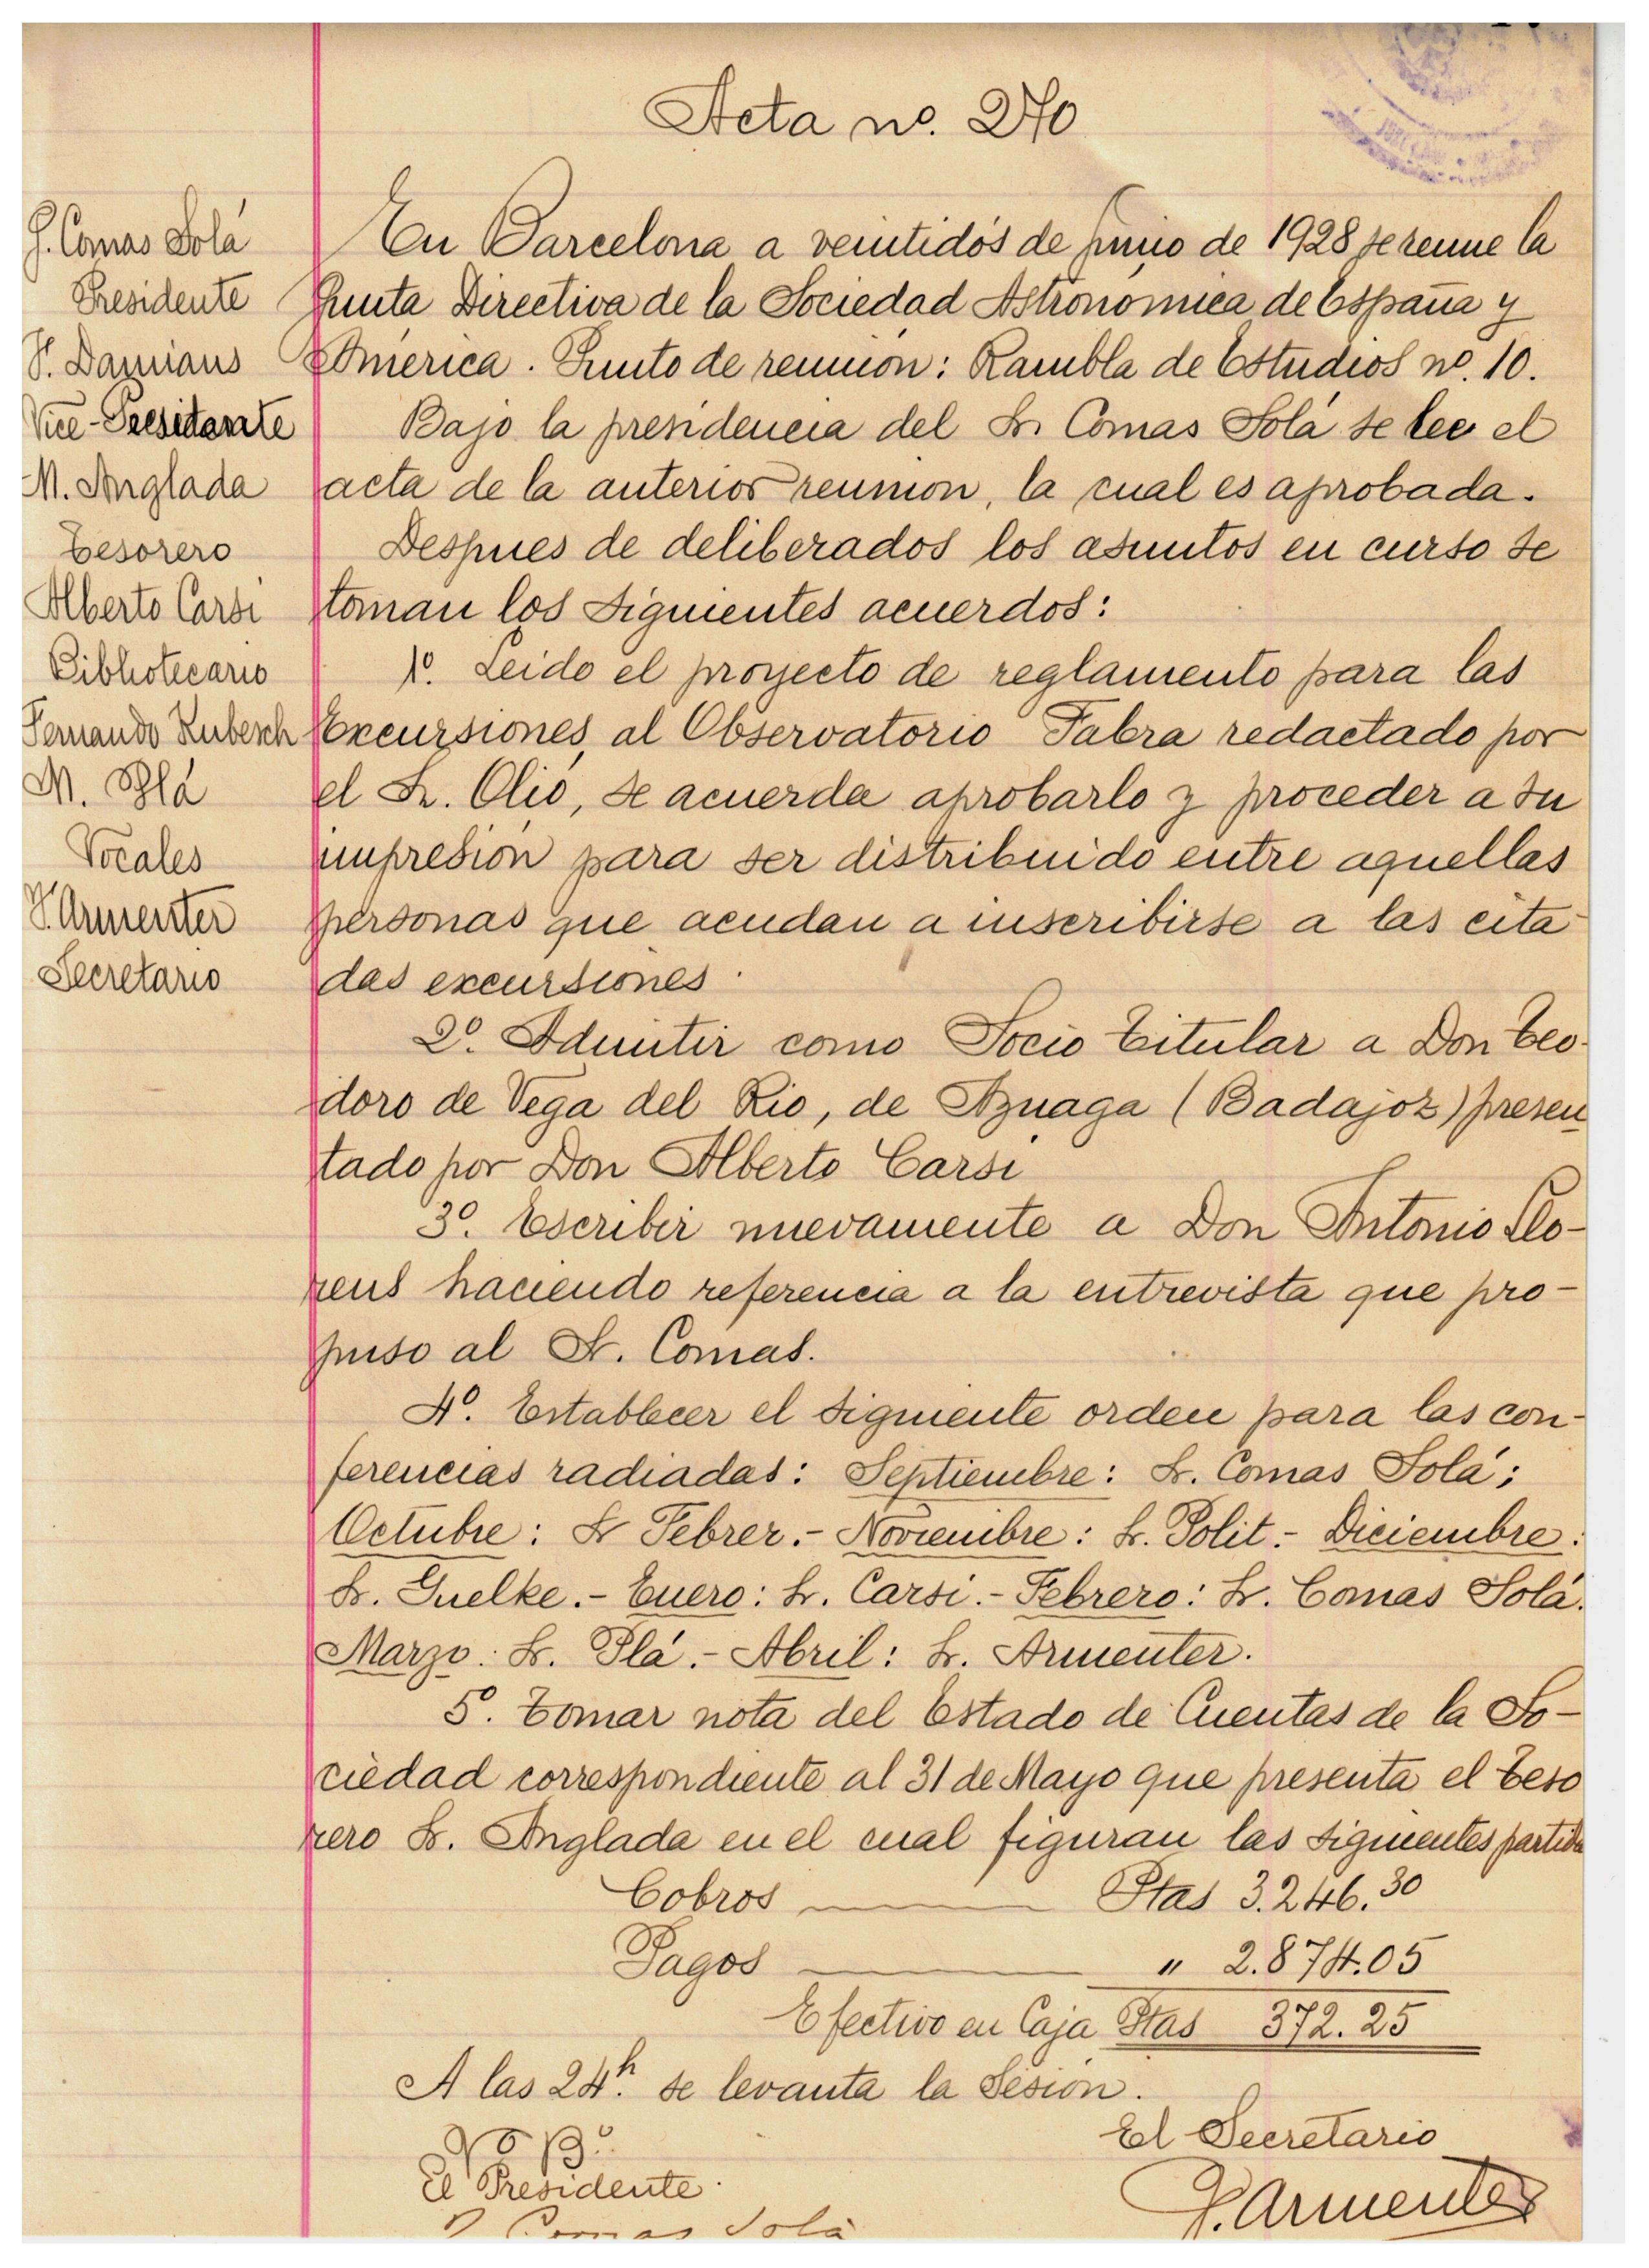 Acta nº. 270
J. Comas Solá
Presidente
P. Damians
Vice-Presidente
M. Anglada
Tesorero
Alberto Carsi
Bibliotecario
Fernando Kubesch
M. Plá
Vocales
P. Armenter
Secretario
En Barcelona a veintidós de junio de 1928 se reune la
Junta Directiva de la Sociedad Astronomica de España y
America. Punto de reunion: Rambla de Estudios nº. 10.
Bajo la presidencia del Sr. Comas Solá se lee el
acta de la anterior reunion, la cual es aprobada.
Despues de deliberados los asuntos en curso se
toman los siguientes acuerdos:
1º. Leido el proyecto de reglamento para las
Excursiones al Observatorio Fabra redactado por
el Sr. Olió, se acuerda aprobarlo y proceder a su
impresión para ser distribuido entre aquellas
personas que acudan a inscribirse a las cita-
das excursiones.
2º. Admitir como Socio Titular a Don Teo-
doro de Vega del Rio, de Azuaga (Badajoz) presen
tado por Don Alberto Carsi
3º. Escribir nuevamente a Don Antonio Llo-
rens haciendo referencia a la entrevista que pro-
puso al Sr. Comas.
4º. Establecer el siguiente orden para las con-
ferencias radiadas: Septiembre: Sr. Comas Solá;
Octubre: Sr Febrer.- Noviembre: Sr. Polit.- Diciembre:
Sr. Guelke.- Enero: Sr. Carsi.- Febrero: Sr. Comas Solá.
Marzo: Sr. Plá.- Abril: Sr. Armenter.
5º. Tomar nota del Estado de Cuentas de la So-
ciedad correspondiente al 31 de Mayo que presenta el Teso
rero Sr. Anglada en el cual figuran las siguientes partida
Cobros Ptas 3.246.30
Pagos " 2.874.05
Efectivo en Caja Ptas 372.25
A las 24h. se levanta la Sesión.
El Secretario
Vº Bº.
El Presidente.
P. Armenter
J Comas Solà